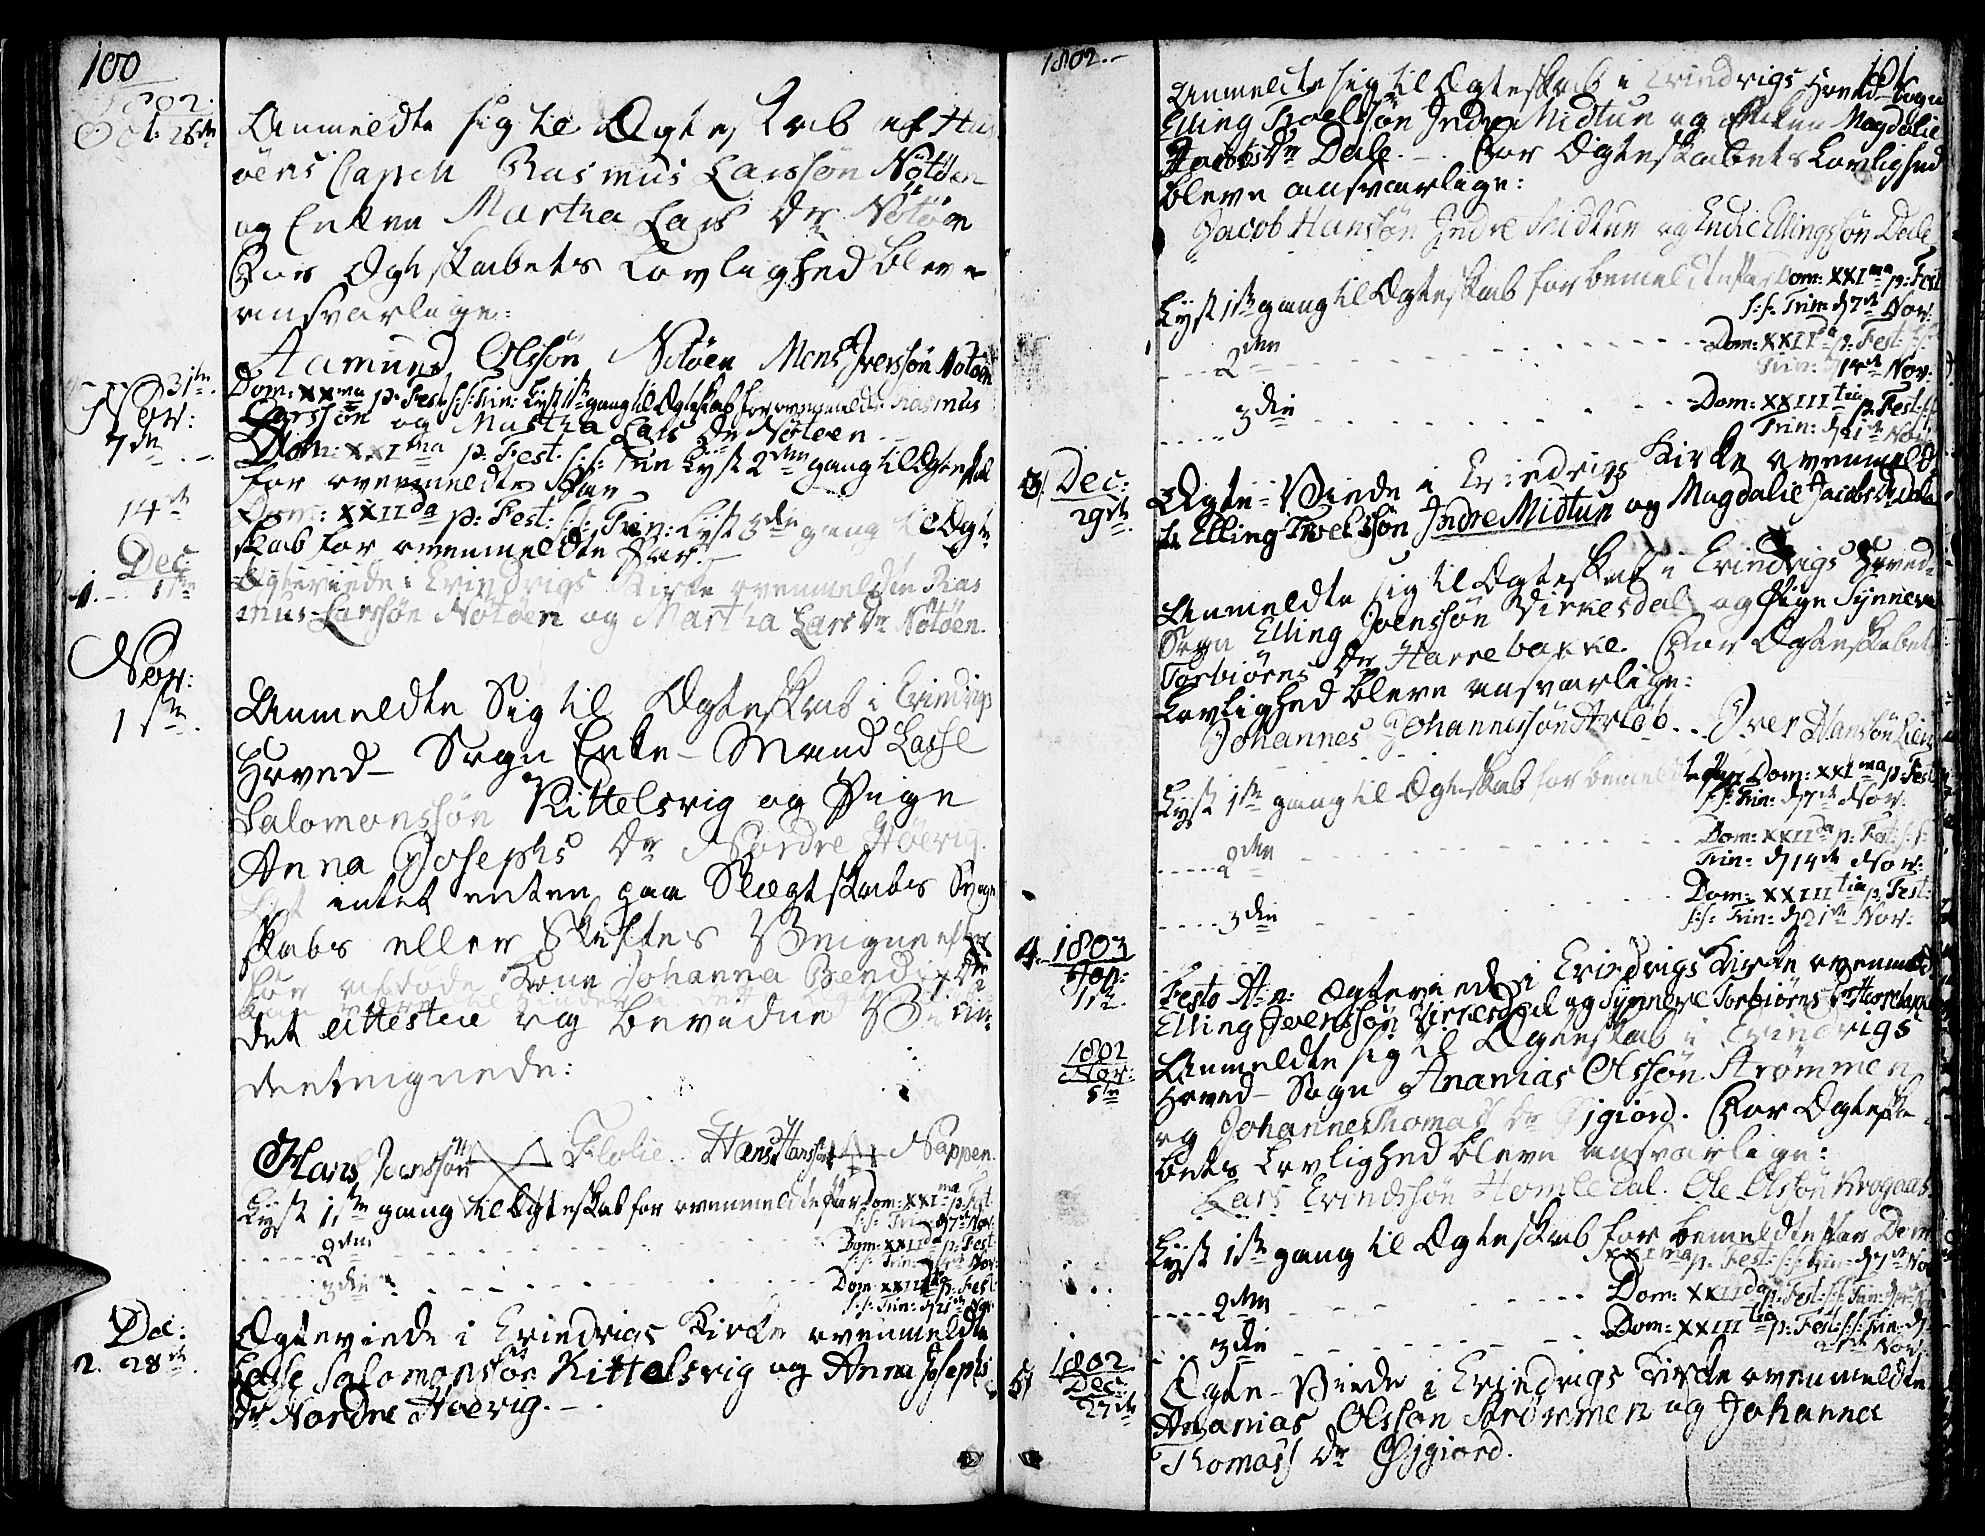 100
1802.
Oct: 26de
Anmeldte sig til Ægteskab af Hus
öens Capell Rasmus Larssön Nötöen
og Enken Martha Lars Dr Nötöen
For Ægteskabets Lovlighed bleve
ansvarlige:
Aamund Olssön Nötöen Mons Iverssön Nötöen
31te.
Dom: XXma p: Fest: s: s: Trin: Lyst 1ste gang til Ægteskab for ovenmeldte Rasmus
Nov:
Larssön og Martha Lars Dr Nötöen
7de
Dom: XXIma p: Fest. s: s: Trin Lyst 2den gang til Ægteskab
for ovenmeldte Par
14de
Dom: XXIIda p: Fest: s: s: Trin: Lyst 3die gang til Ægte-
skab for ovenmeldte Par. —
Dec
1. 1ste
Ægteviede i Eivindvigs Kirke ovenmeldte Ras
mus Larssön Nötöen og Martha Lars Dr Nötöen.
Nov:
1ste.
Anmeldte Sig til Ægteskab i Eivindvigs
Hoved-Sogn Enke-Mand Lasse
Salomonssön Kittelsvig og Pige
Anna Josephs Dr Nordre Höevig.
intet enten paa Slægtskabs Svoger
skabs eller Skiftes Veigne efter
hans afdöde Kone Johanna Bendix Dr
det attestere og bevidne Vi under
tegnede:
Hans Janssön Flolie. Hans Hanssön Nappen.
Lyst 1ste gang til Ægteskab for ovenmeldte Par Dom: XXIma p: Fest:
s: s: Trin: d 7de Nov:
2den Dom: XXIIda p: Fest:
s: s: Trin: d 14de Nov:
3die Dom: XXIIItia p: Fest:
s: s: Trin: d 21de Nov:
Dec:
2. 28de.
Ægteviede i Eivindvigs Kirke ovenmeldte
Lasse Salomonssön Kittelsvig og Anna Josephs
Dr Nordre Höevig. —.
1802.—
101
Anmeldte sig til Ægteskab i Eivindvigs Hoved Sogn
Elling Troelssön Indre Midtun og Enken Magdalie
Jacobs Dr Dale. —. For Ægteskabets Lovlighed
bleve ansvarlige:
Jacob Hanssön Indre Midtun og Endre Ellingssön Dale
Lyst 1ste gang til Ægteskab for bemeldte Par Dom: XXIma p: Fest
s: s: Trin d 7de Nov:
2den Dom: XXIIda p: Fest: s: s:
Trin: d 14de Nov:
3die Dom: XXIIItia p: Fest: s: s:
Trin: d 21de Nov:
3. Dec:
29de.
Ægte-Viede i Eivindvigs Kirke ovenmeld
te Elling Troelssön Indre Midtun og Magdalie Jacobs Dr Dale
Anmeldte sig til Ægteskab i Eivindvigs Hoved-
Sogn Elling Joenssön Virkesdal og Pige Synneve
Torbiörns Dr Harrebakke. For Ægteskabets
Lovlighed bleve ansvarlige:
Johannes Johannessön Arlöb. Iver Hanssön Lien
Lyst 1ste gang til Ægteskab for bemeldte Par Dom: XXIma p: Fest
s: s: Trin: d 7de Nov:
2den Dom: XXIIda p: Fest: s: s:
Trin: d 14de Nov:
3die Dom: XXIIItia p: Fest:
s: s: Trin: d 21de Nov:
4. 1803
Jan:
1ste.
Festo N: A: Ægteviede i Eivindvigs Kirke ovenmeldte
Elling Joenssön Virkesdal og Synneve Torbiörns Dr Harrebakke
1802
Nov:
5te
Anmeldte sig til Ægteskab i Eivindvigs
Hoved-Sogn Ananias Olssön Strömmen
og Johanne Thomas Dr Öjgiord. For Ægteska-
bets Lovlighed bleve ansvarlige:
Lars Eivindssön Homledal. Ole Olssön Krogaas
Lyst 1ste gang til Ægteskab for bemeldte Par Dom
XXIma p: Fest: s: s: Trin: d 7de Nov
2den Dom: XXIIda p: Fest: s: s: Trin: d 14de
3die Dom: XXIIItia p: Fest: s: s: Trin: d
21de Nov:
5. 1802
Dec:
27de
Ægte-Viede i Eivindvigs Kirke ovenmeldte
Ananias Olssön Strömmen og Johanne
Thomas Dr Öjgiord.